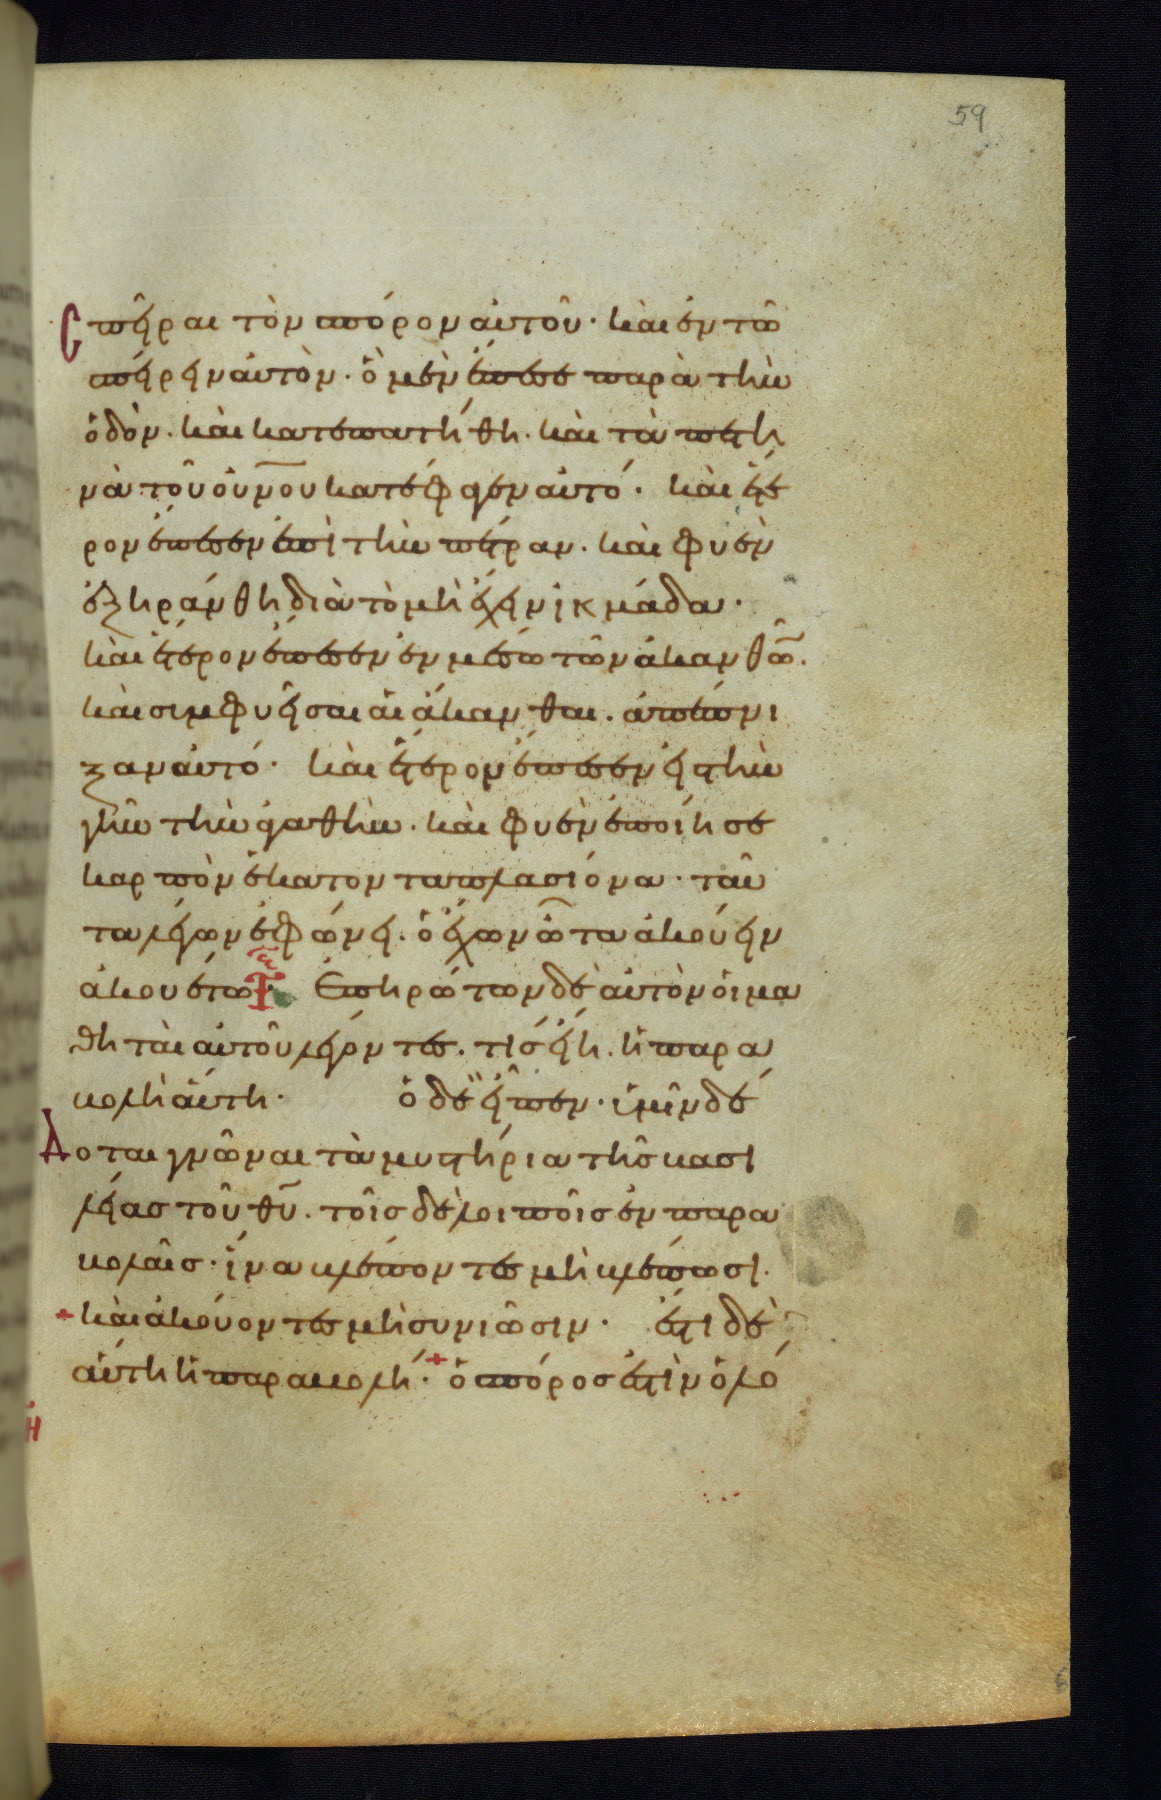 59
σπεῖραι τὸν σπόρον αὐτοῦ· καὶ ἐν τῶ
σπείρειν αὐτὸν· ὃ μὲν ἔπεσε παρὰ τὴν
ὁδὸν· καὶ κατεπατήθη· καὶ τὰ πετει
νὰ τοῦ οὐνου κατέφαγεν αὐτό· καὶ ἕτε
ρον ἔπεσεν ἐπὶ τὴν πέτραν· καὶ φυὲν
ἐξηράνθη διὰ τὸ μὴ ἔχειν ἰκμάδα·
καὶ ἕτερον ἔπεσεν ἐν μέσω τῶν ἀκανθῶ·
καὶ συμφυεῖσαι αἱ ἄκανθαι· ἀπέπνι
ξαν αὐτό· καὶ ἕτερον ἔπεσεν εἰς τὴν
γῆν τὴν ἀγαθὴν· καὶ φυὲν ἐποίησε
καρπὸν ἑκατονταπλασίονα· ταῦ
τα λέγων ἐφώνει· ὁ ἔχων ὦτα ἀκούειν
ἀκουέτω· Ἐπηρώτων δὲ αὐτὸν οἱ μα
θηταὶ αὐτοῦ λέγοντες· τίς εἴη· ἡ παρα
βολὴ αὕτη· ὁ δὲ εἶπεν· ὑμῖν δέ
δοται γνῶναι τὰ μυστήρια τῆς βασι
λείας τοῦ θυ· τοῖς δὲ λοιποῖς ἐν παρα
βολαῖς· ἵνα βλέποντες μὴ βλέπωσι·
καὶ ἀκούοντες μὴ συνιῶσιν· ἔστι δὲ
αὕτη ἡ παραβολή· ὁ σπόρος ἐστὶν ὁ λό